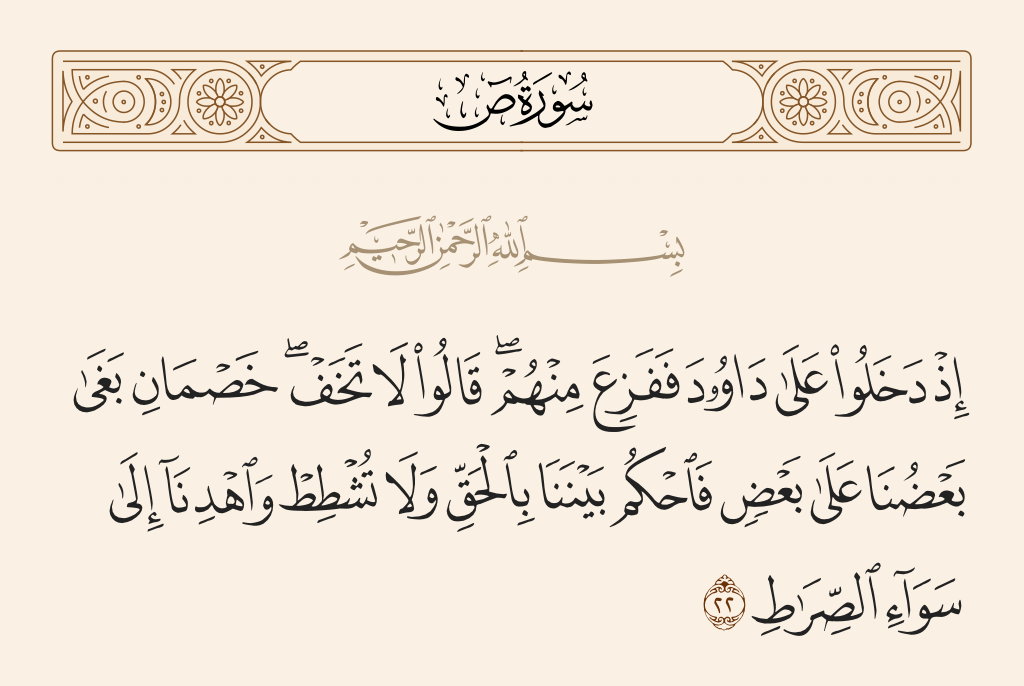 سُورَةُ صٓ
بِسْمِ ٱللَّهِ ٱلرَّحْمَٰنِ ٱلرَّحِيمِ
إِذْ دَخَلُوا۟ عَلَىٰ دَاوُۥدَ فَفَزِعَ مِنْهُمْ ۖ قَالُوا۟ لَا تَخَفْ ۖ خَصْمَانِ بَغَىٰ
بَعْضُنَا عَلَىٰ بَعْضٍ فَٱحْكُم بَيْنَنَا بِٱلْحَقِّ وَلَا تُشْطِطْ وَٱهْدِنَآ إِلَىٰ
سَوَآءِ ٱلصِّرَٰطِ ٢٢